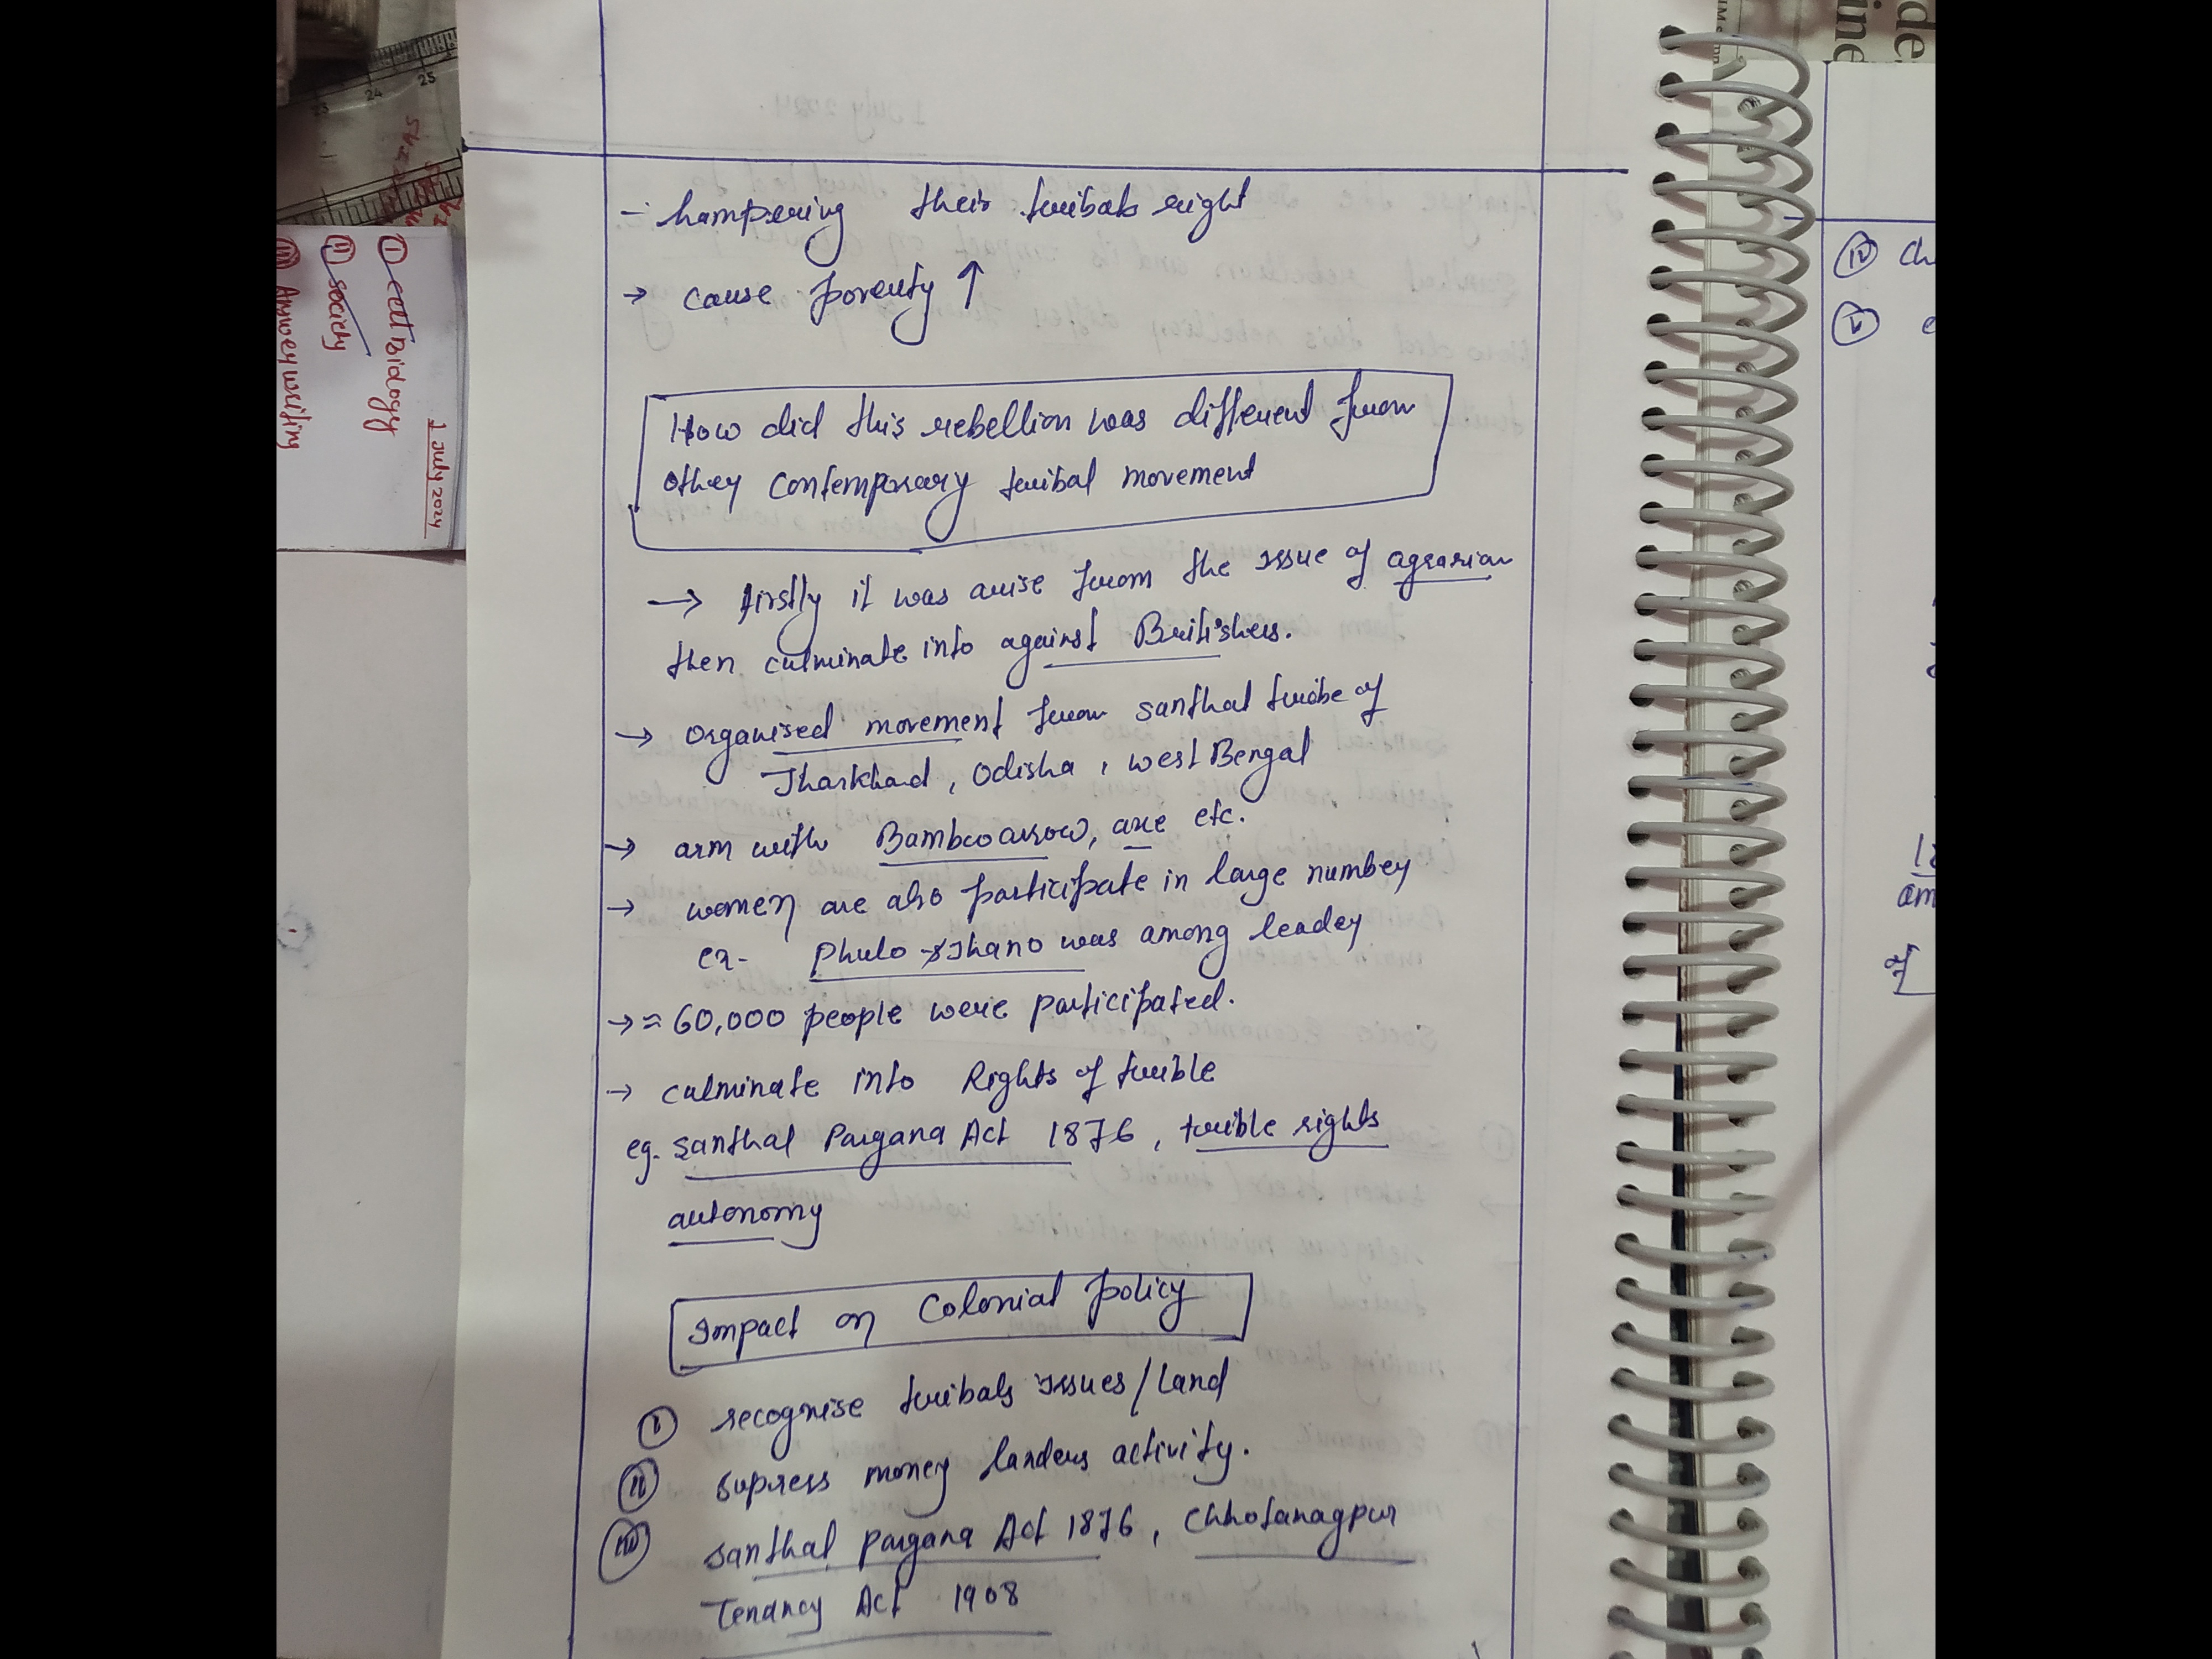 - hampering their tribals right
→ cause poverty ↑
How did this rebellion was different from
other contemporary tribal movement
→ firstly it was arise from the issue of agrarian
then culminate into against Britishers.
→ organised movement from santhal tribe of
Jharkhad, Odisha, west Bengal
→ arm with Bamboo arrow, axe etc.
→ women are also participate in large number
ex- Phulo & Jhano was among leader
→ ≈ 60,000 people were participated.
→ culminate into Rights of trible
eg. santhal Pargana Act 1876, trible rights
autonomy
Impact on Colonial policy
(i) recognise tribals issues/land
(ii) supress money landers activity.
(iii) santhal pargana Act 1876, Chhotanagpur
Tenancy Act 1908
1 July 2024
(i) eco
(ii) society
(iii) Answer writing
23 24 25
(iv) Ch
(v) e
18
am
of
de
ine